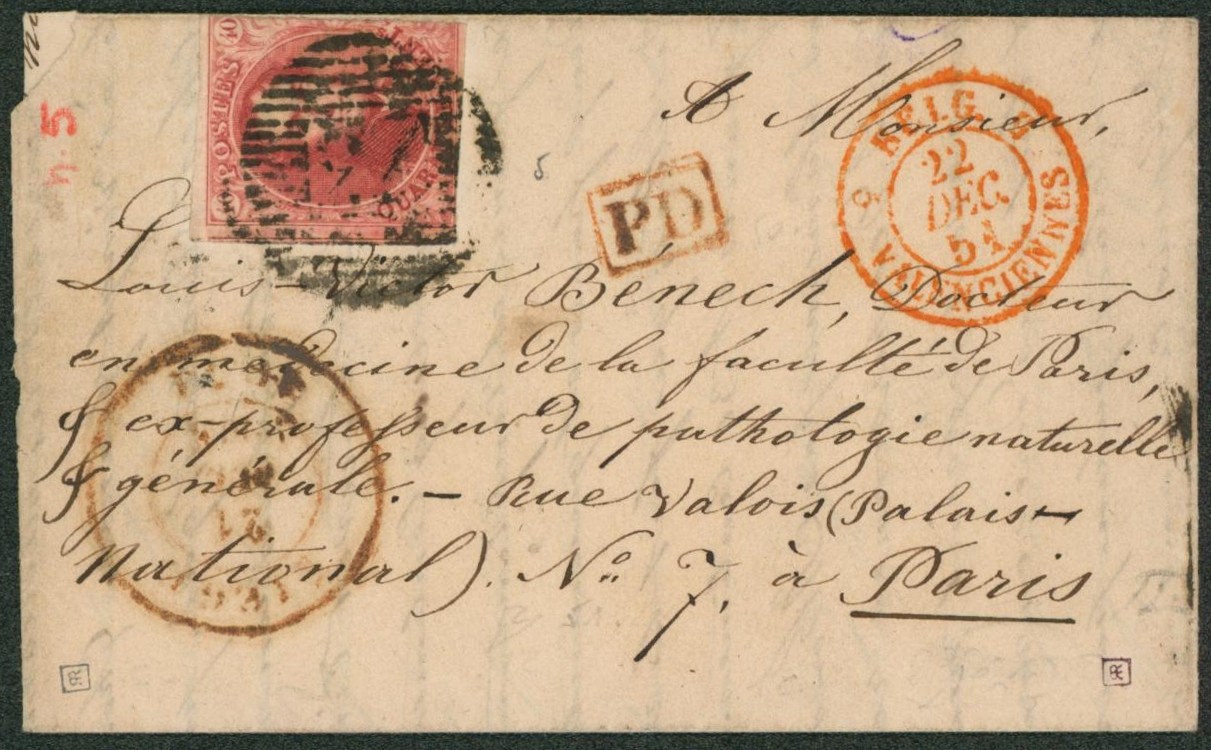 POSTES
40
QUAR
n.5
5
PD
BELG.
22
DEC.
51
VALENCIENNES
A Monsieur,
Louis-Victor Bénech, Docteur
en médecine de la faculté de Paris,
& ex-professeur de pathologie naturelle
& générale. – Rue Valois (Palais-
National). No. 7, à Paris